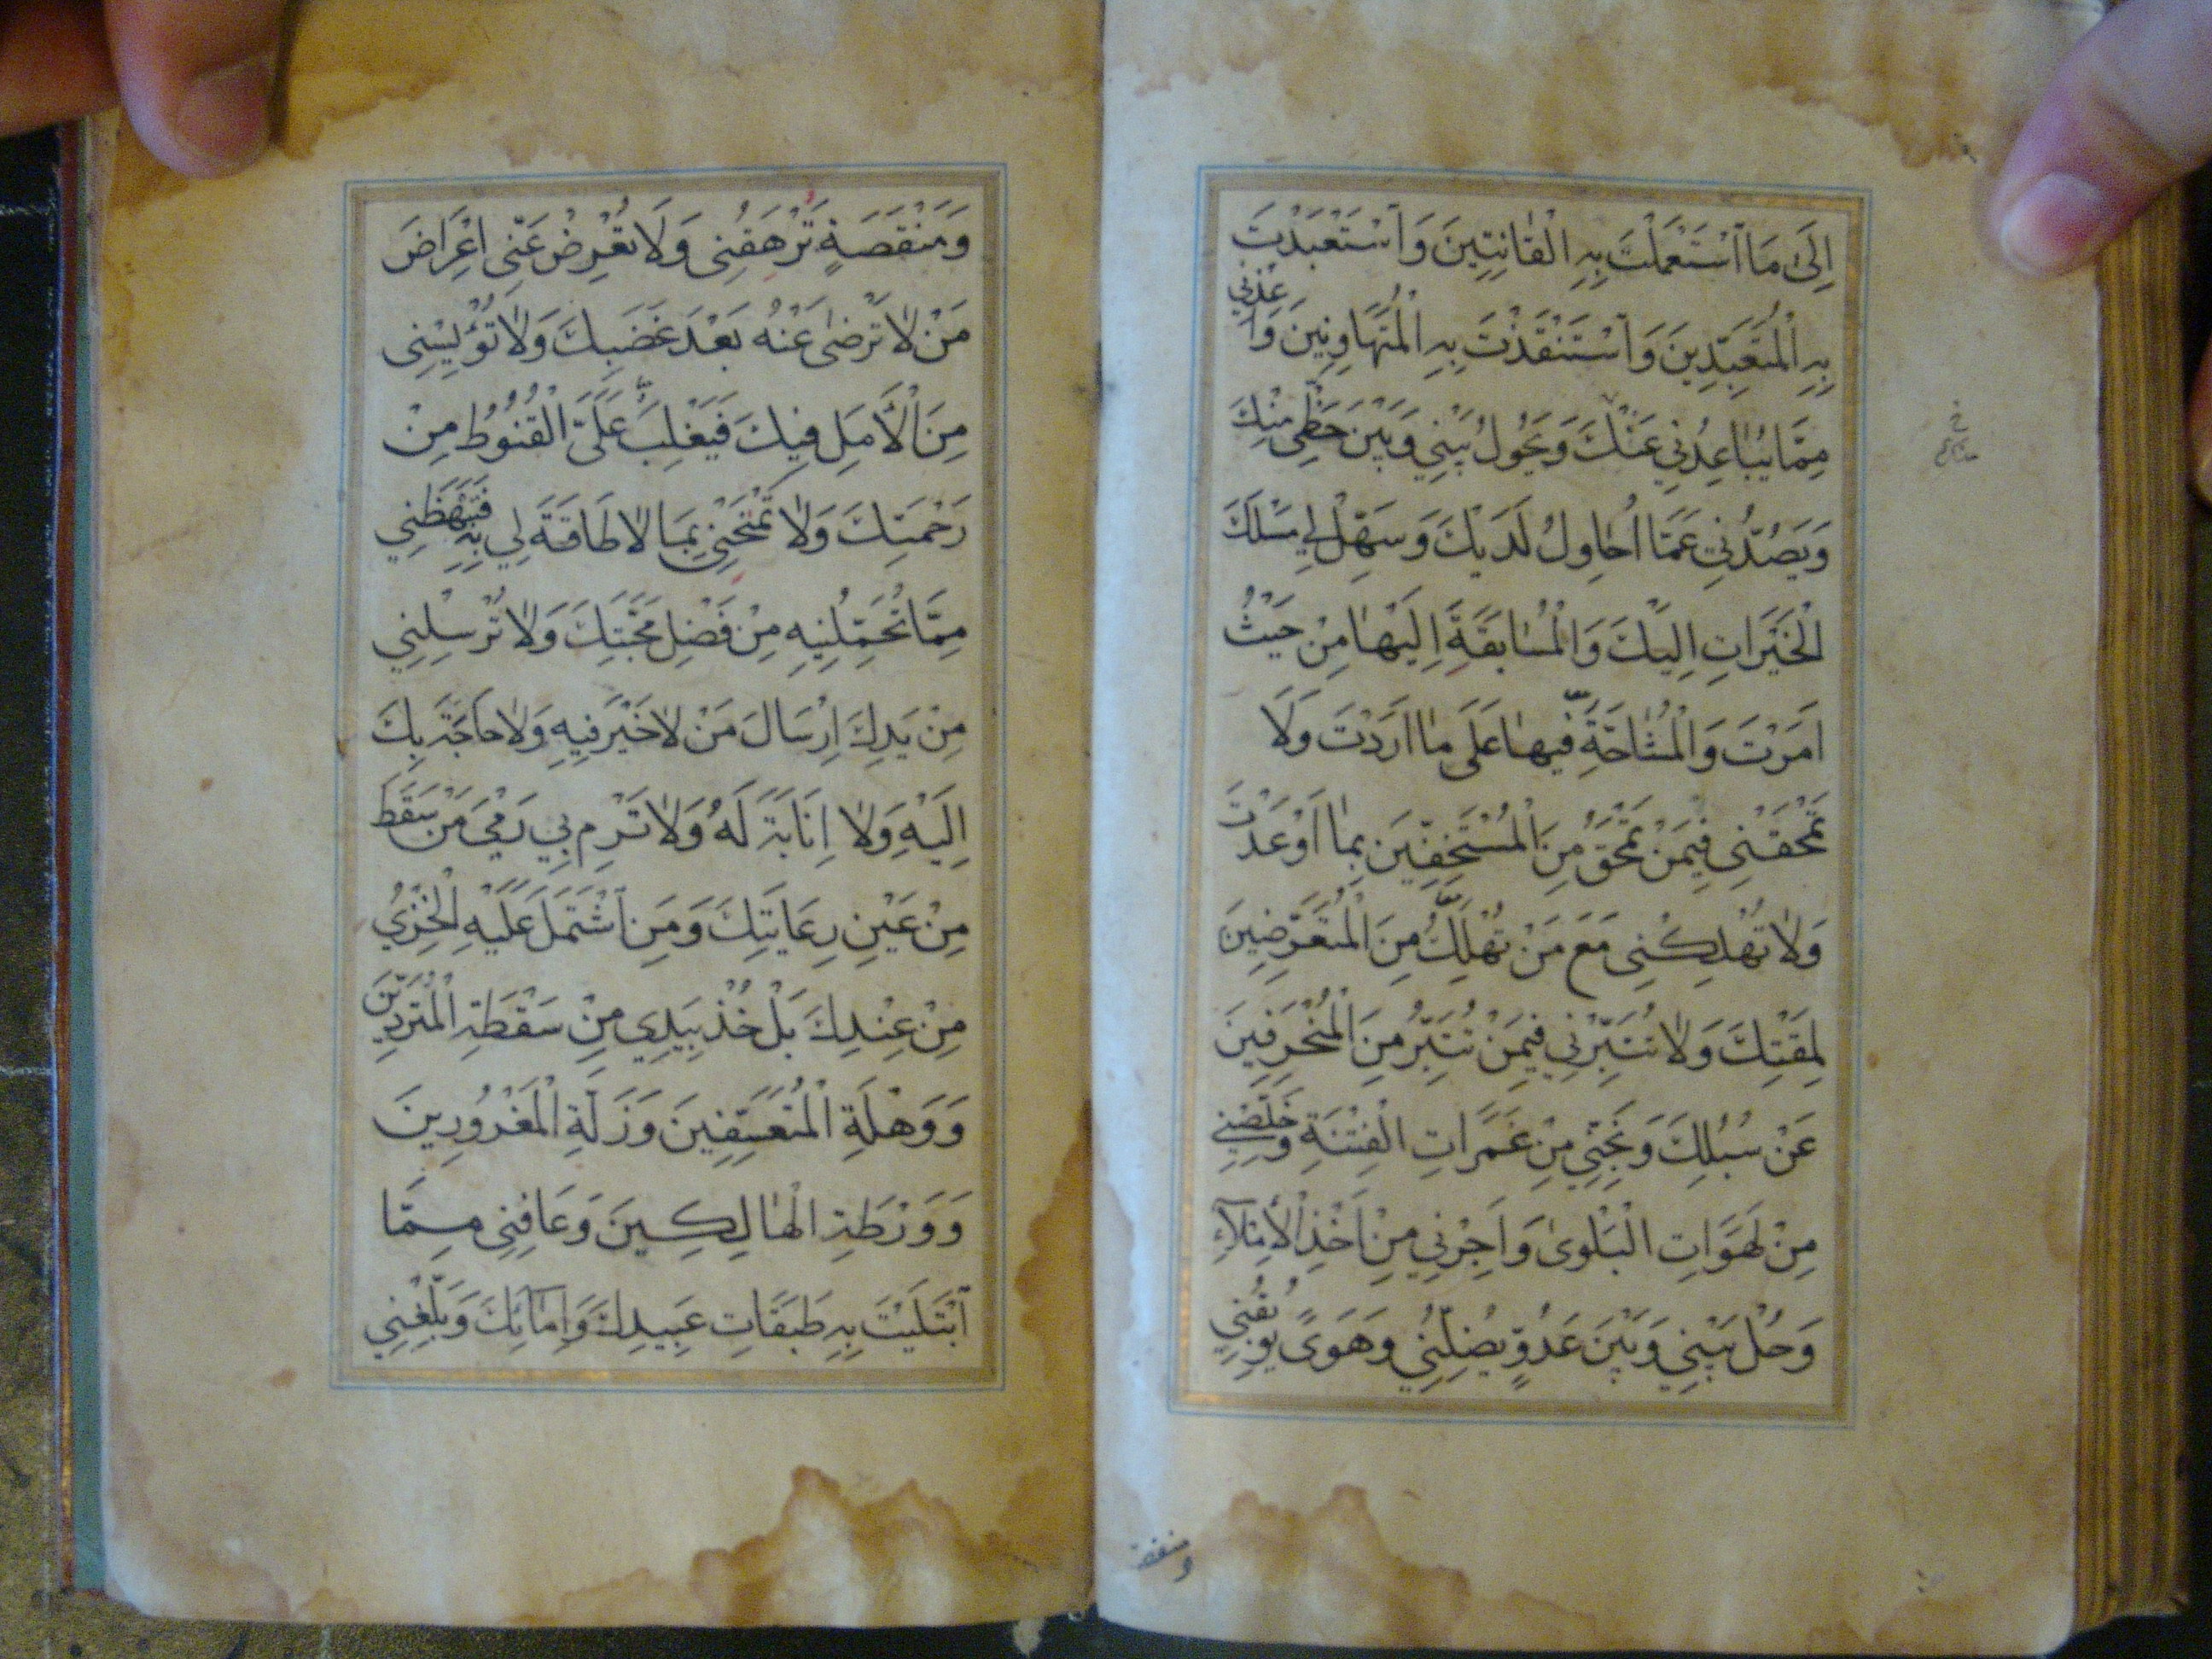 اِلىٰ مَا اسْتَعْمَلْتَ بِهِ الْقانِتِينَ وَاسْتَعْبَدْتَ
بِهِ الْمُتَعَبِّدِينَ وَاسْتَنْقَذْتَ بِهِ الْمُتَهاوِنِينَ وَاَعِذْنِي
مِمَّا يُباعِدُنِي عَنْكَ وَيَحُولُ بَيْنِي وَبَيْنَ حَظِّي مِنْكَ
وَيَصُدُّنِي عَمَّا اُحاوِلُ لَدَيْكَ وَسَهِّلْ لِي مَسْلَكَ
الْخَيْرَاتِ اِلَيْكَ وَالْمُسابَقَةَ اِلَيْها مِنْ حَيْثُ
اَمَرْتَ وَالْمُشاحَّةَ فِيها عَلَى ما اَرَدْتَ وَلَا
تَمْحَقْنِي فِيمَنْ تَمْحَقُ مِنَ الْمُسْتَخِفِّينَ بِمٰا اَوْعَدْتَ
وَلاٰ تُهْلِكْنِي مَعَ مَنْ تُهْلِكُ مِنَ الْمُتَعَرِّضِينَ
لِمَقْتِكَ وَلاٰ تُتَبِّرْنِي فِيمَنْ تُتَبِّرُ مِنَ الْمُنْحَرِفِينَ
عَنْ سُبُلِكَ وَنَجِّنِي مِنْ غَمَرَاتِ الْفِتْنَةِ وَخَلِّصْنِي
مِنْ لَهَوَاتِ الْبَلْوىٰ وَاَجِرْنِي مِنْ اَخْذِ الْاِمْلَآءِ
وَحُلْ بَيْنِي وَبَيْنَ عَدُوٍّ يُضِلُّنِي وَهَوًى يُوبِقُنِي
ومنقصة
وَمَنْقَصَةٍ تَرْهَقُنِي وَلَا تُعْرِضْ عَنِّي اِعْرَاضَ
مَنْ لاٰ تَرْضىٰ عَنْهُ بَعْدَ غَضَبِكَ وَلاٰ تُؤْيِسْنِي
مِنَ الْأَمَلِ فِيكَ فَيَغْلِبَ عَلَيَّ الْقُنُوطُ مِنْ
رَحْمَتِكَ وَلاٰ تَمْنَحْنِي بِمَا لاٰ طَاقَةَ لِي بِهِ فَتَبْهَظَنِي
مِمَّا تُحَمِّلُنِيهِ مِنْ فَضْلِ مَحَبَّتِكَ وَلاٰ تُرْسِلْنِي
مِنْ يَدِكَ اِرْسَالَ مَنْ لاٰ خَيْرَ فِيهِ وَلاٰ حاجَةَ بِكَ
اِلَيْهِ وَلاٰ اِنَابَةَ لَهُ وَلاٰ تَرْمِ بِي رَمْيَ مَنْ سَقَطَ
مِنْ عَيْنِ رِعَايَتِكَ وَمَنِ اشْتَمَلَ عَلَيْهِ الْخِزْيُ
مِنْ عِنْدِكَ بَلْ خُذْ بِيَدِي مِنْ سَقْطَةِ الْمُتَرَدِّينَ
وَوَهْلَةِ الْمُتَعَسِّفِينَ وَزَلَّةِ الْمَغْرُورِينَ
وَوَرْطَةِ الْهٰالِكِينَ وَعَافِنِي مِمَّا
ابْتَلَيْتَ بِهِ طَبَقَاتِ عَبِيدِكَ وَاِمَائِكَ وَبَلِّغْنِي